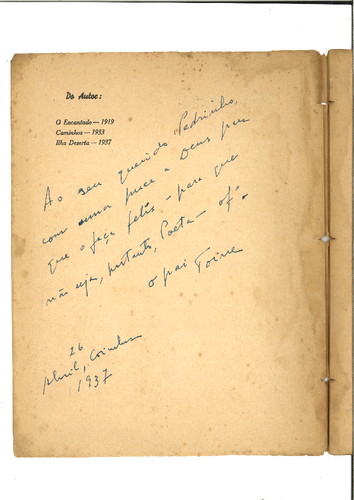 Do Autor:
O Encantado — 1919
Caminhos — 1933
Ilha Deserta — 1937
Ao seu querido Pedrinho,
com uma prece a Deus pra
que o faça feliz — para que
não seja, portanto, Poeta — of.
o pai
26
Abril, Coimbra
1937